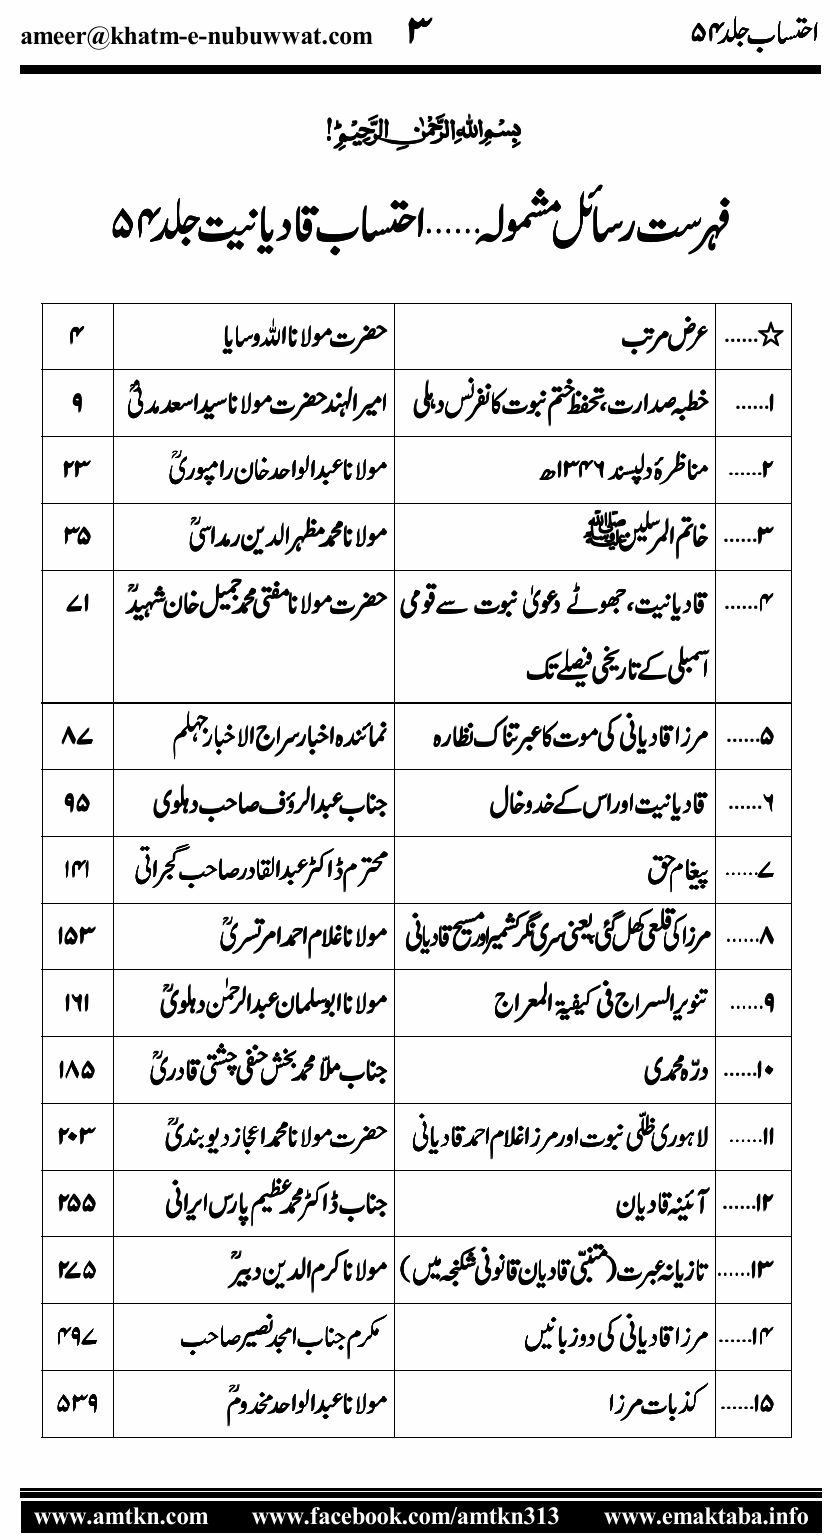 احتساب جلد ۵۴ ۳ ameer@khatm-e-nubuwwat.com
بسم اللہ الرحمٰن الرحیم!
فہرست رسائل مشمولہ...... احتساب قادیانیت جلد ۵۴
☆...... عرض مرتب حضرت مولانا اللہ وسایا ۴
۱...... خطبہ صدارت، تحفظ ختم نبوت کانفرنس دہلی امیر الہند حضرت مولانا سید اسعد مدنیؒ ۹
۲...... مناظرۂ دلپسند ۱۳۴۶ھ مولانا عبدالواحد خان رامپوریؒ ۲۳
۳...... خاتم المرسلین ﷺ مولانا محمد مظہر الدین رمداسیؒ ۳۵
۴...... قادیانیت، جھوٹے دعویٰ نبوت سے قومی حضرت مولانا مفتی محمد جمیل خان شہیدؒ ۷۱
اسمبلی کے تاریخی فیصلے تک
۵...... مرزا قادیانی کی موت کا عبرتناک نظارہ نمائندہ اخبار سراج الاخبار جہلم ۸۷
۶...... قادیانیت اور اس کے خدوخال جناب عبدالرؤف صاحب دہلوی ۹۵
۷...... پیغام حق محترم ڈاکٹر عبدالقادر صاحب گجراتی ۱۴۱
۸...... مرزا کی قلعی کھل گئی یعنی سری نگر کشمیر اور مسیح قادیانی مولانا غلام احمد امرتسریؒ ۱۵۳
۹...... تنویر السراج فی کیفیۃ المعراج مولانا ابوسلمان عبدالرحمٰن دہلویؒ ۱۶۱
۱۰...... درّہ محمدی جناب ملاّ محمد بخش حنفی چشتی قادریؒ ۱۸۵
۱۱...... لاہوری ظلّی نبوت اور مرزا غلام احمد قادیانی حضرت مولانا محمد اعجاز دیوبندیؒ ۲۰۳
۱۲...... آئینہ قادیان جناب ڈاکٹر محمد عظیم پارس ایرانی ۲۵۵
۱۳...... تازیانہ عبرت (متنبّی قادیان قانونی شکنجہ میں) مولانا کرم الدین دبیرؒ ۲۷۵
۱۴...... مرزا قادیانی کی دو زبانیں مکرم جناب امجد نصیر صاحب ۴۹۷
۱۵...... کذبات مرزا مولانا عبدالواحد مخدومؒ ۵۳۹
www.amtkn.com www.facebook.com/amtkn313 www.emaktaba.info